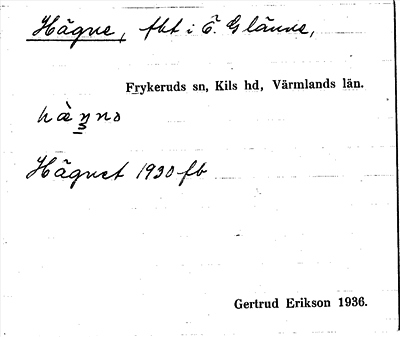 Hägne, tkt i Ö. Glänne,
Frykeruds sn, Kils hd, Värmlands län.
Hägnet 1930 fb
Gertrud Erikson 1936.